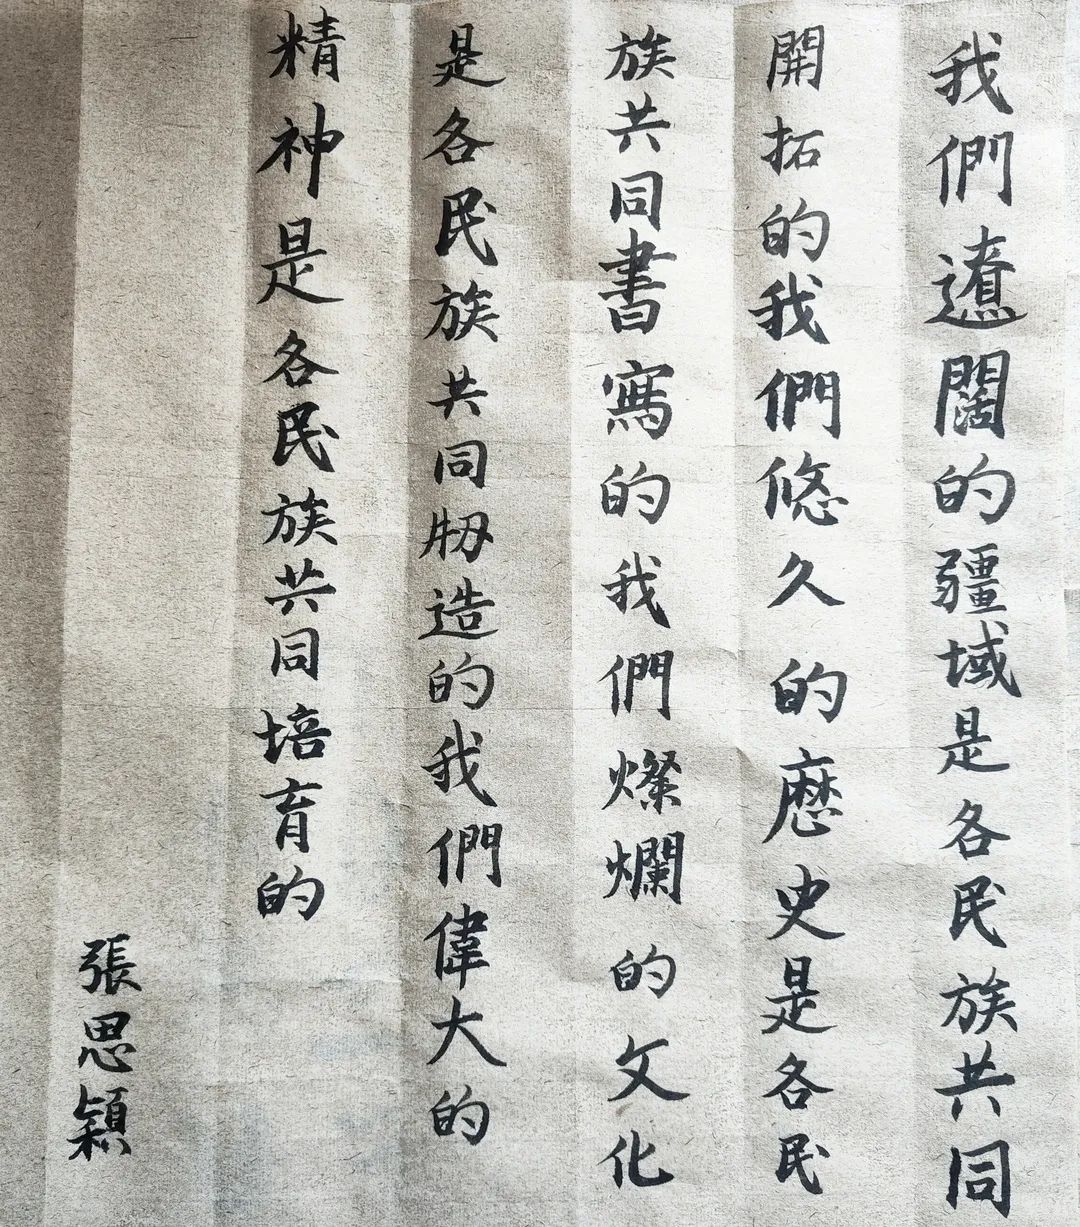 我們遼闊的疆域是各民族共同
開拓的我們悠久的歷史是各民
族共同書寫的我們燦爛的文化
是各民族共同刱造的我們偉大的
精神是各民族共同培育的
張思穎